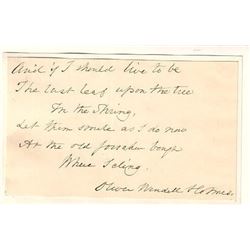 And if I should live to be
The last leaf upon the tree
In the Spring,
Let them smile as I do now
At the old forsaken bough
Where I cling.
Oliver Wendell Holmes.